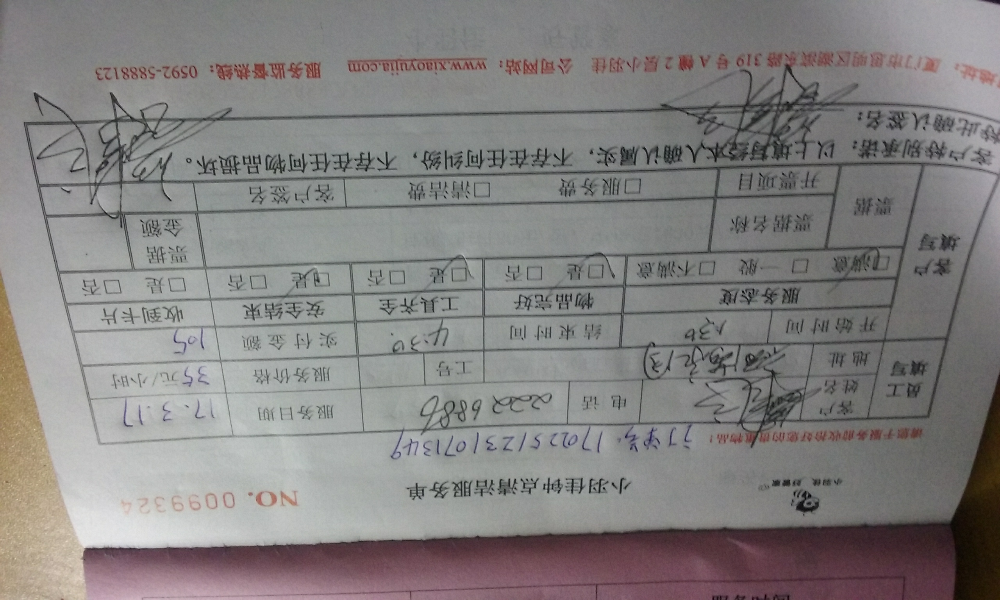 小羽佳 好管家
小羽佳钟点清洁服务单
NO. 0099324
请您于服务前收拾好您的贵重物品!
订单号: 1702251231071349
员工填写
客户姓名 电话 2226886 服务日期 17.3.17
地址 工号 服务价格 35元/小时
开始时间 1:30 结束时间 4:30 实付金额 105
客户填写
服务态度 物品完好 工具齐全 安全结束 收到卡片
☑满意 □一般 □不满意 ☑是 □否 ☑是 □否 ☑是 □否 □是 □否
票据 票据名称 票据金额
开票项目 □服务费 □清洁费 客户签名
客户特别承诺:以上填写经本人确认属实,不存在任何纠纷,不存在任何物品损坏。
特此确认签名:
地址:厦门市思明区湖滨东路 319 号 A 幢 2 层小羽佳 公司网站:www.xiaoyujia.com 服务监督热线:0592-5888123